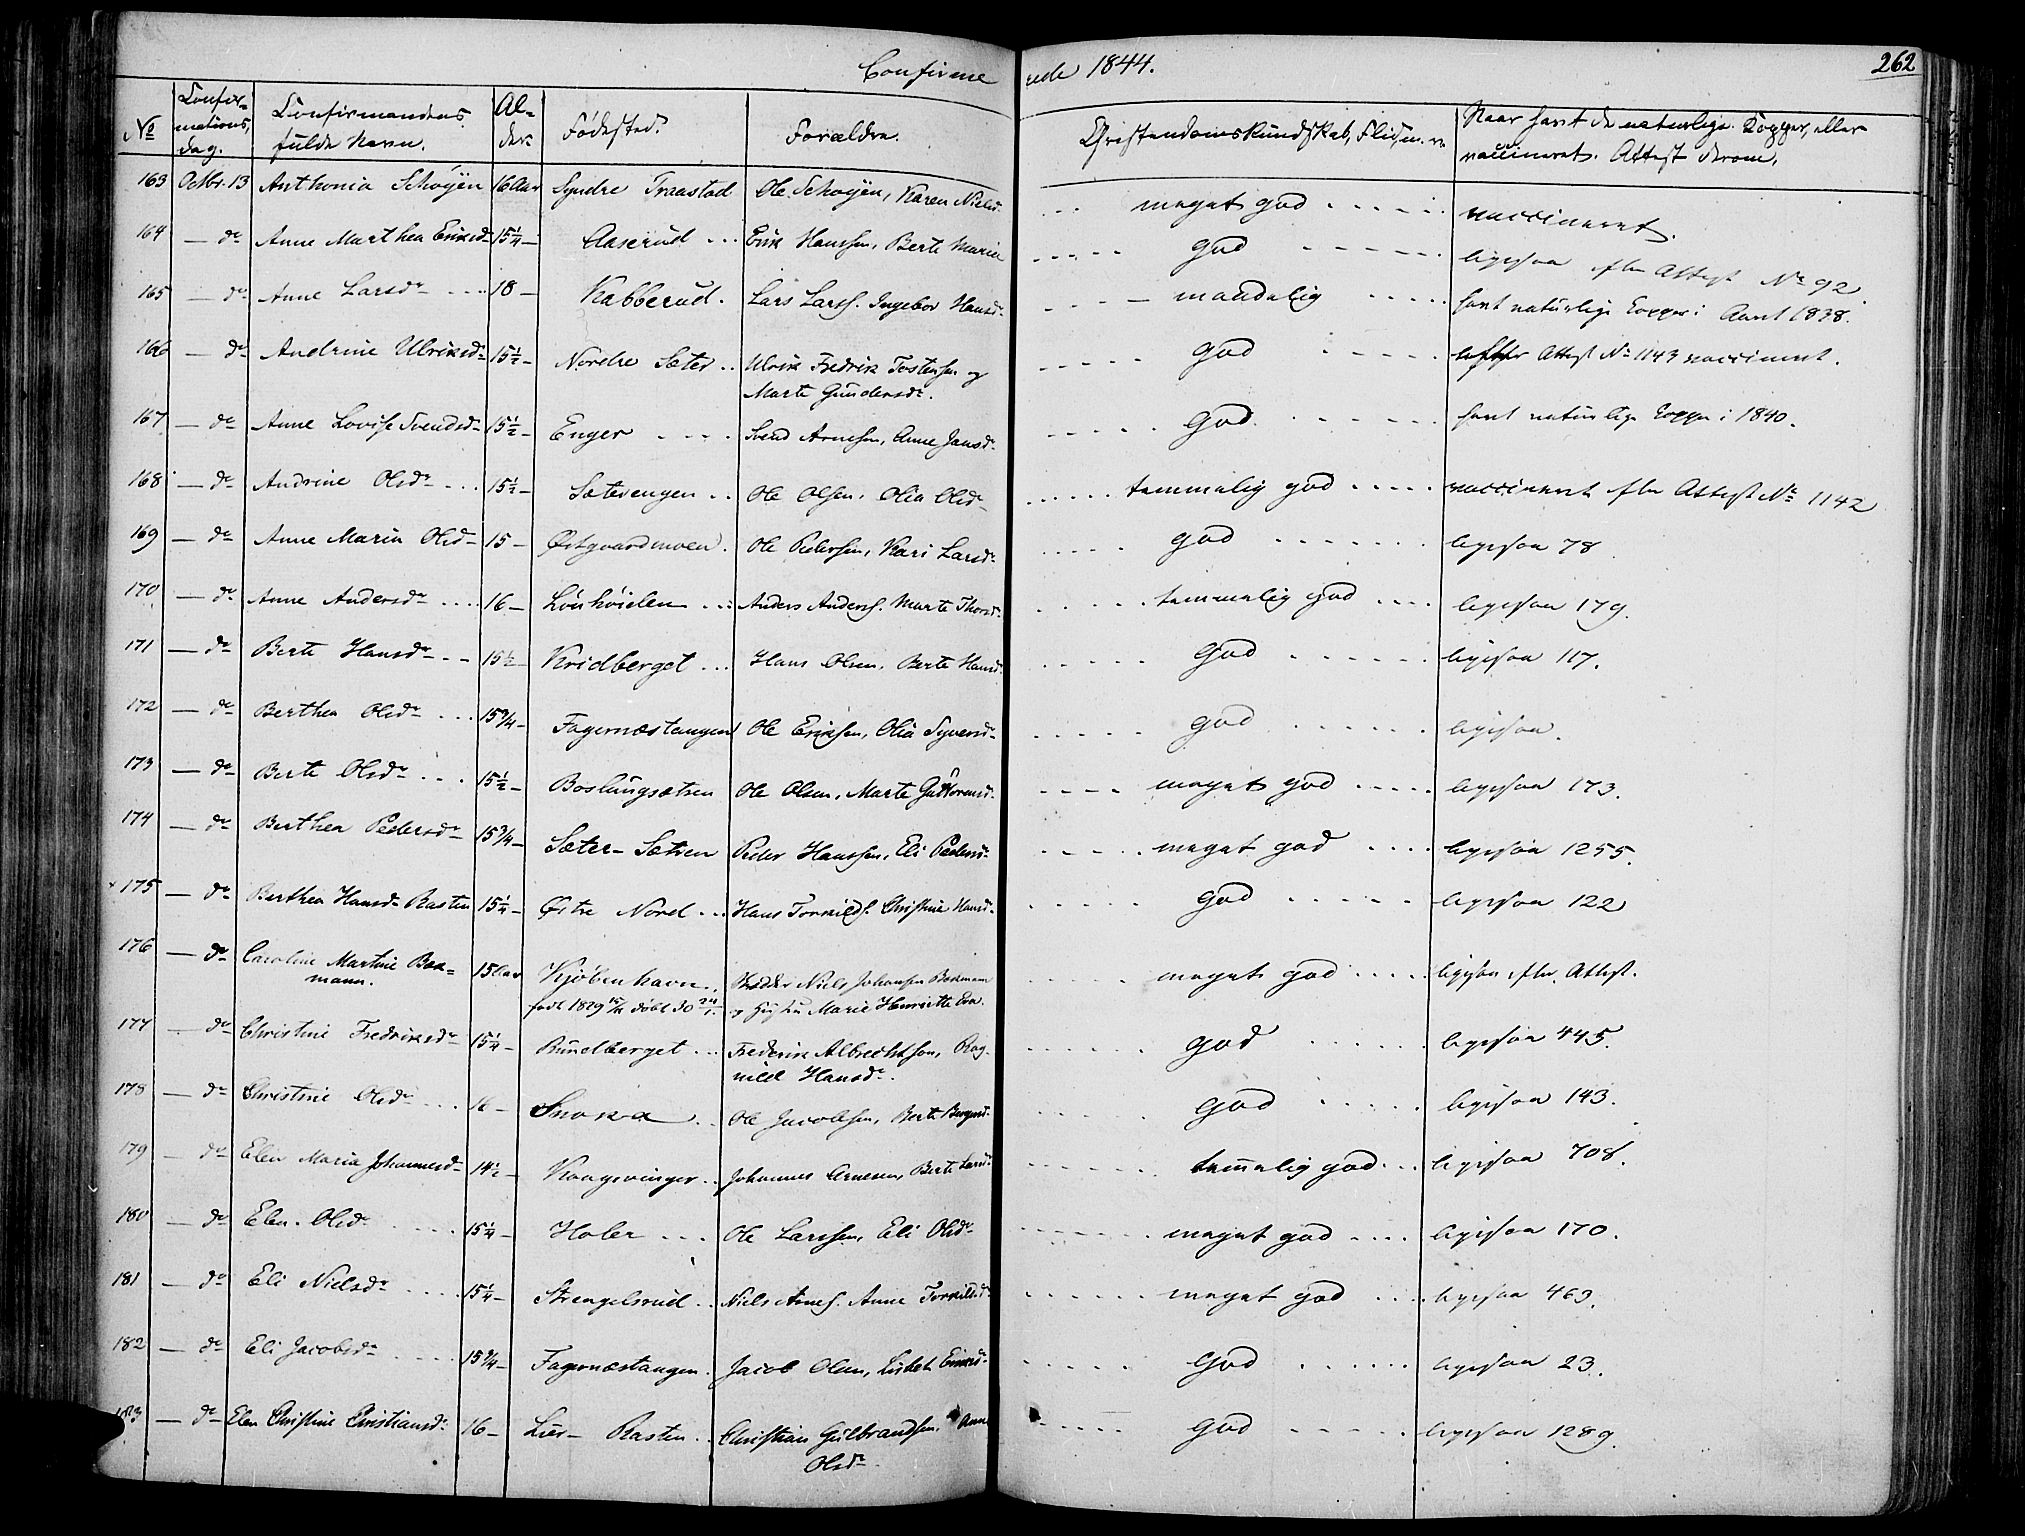 Confirmerede 1844. 262
No Confirmations, dag. Confirmandens fulde Navn. Alder Fødested. Forældre. Christendomskundskab, Flid, Naar havt de naturlige Kopper, eller
vaccineret. Attest derom.
163 Octbr. 13 Anthonia Schøyen 16 Aar Syndre Traastad Ole Schøyen, Karen Nielsd. meget god vaccineret.
164 — do Anne Marthea Eriksdr 15¼ — Aaserud Erik Hanssen, Berte Maria god ligesaa efter Attest No 92.
165 — do Anne Larsdr 18 — Kabberud. Lars Larss. Ingebor Hansdr maadelig havt naturlige Kopper i Aaret 1838.
166 — do Andrine Ulriksdr 15½ — Nordre Sæter Ulrik Fredrik Tostensen og
Marte Gundersdr. god efter Attest No 1143 vaccineret.
167 — do Anne Lovise Svendsdr 15½ — Enger Svend Arnesen, Anne Jansdr god havt naturlige Kopper i 1840.
168 — do Andrine Olsdr 15½ — Sæterengen Ole Olsen, Olia Olsdr temmelig god vaccineret efter Attest No 1142
169 — do Anne Maria Olsdr 15 — Østgaardmoen. Ole Pedersen, Kari Larsdr god ligesaa 78
170 — do Anne Andersdr 16 — Lönhöielen Anders Anderss. Marte Thorsdr temmelig god ligesaa 179.
171 — do Berte Hansdr 15½ — Kridberget Hans Olsen, Berte Hansdr god ligesaa 117.
172 — do Berthea Olsdr 15¾ — Fagernæstangen Ole Eriksen, Olia Syversdr god ligesaa.
173 — do Berte Olsdr 15½ — Boslungsætren Ole Olsen, Marte Guttormsdr. meget god ligesaa 173.
174 — do Berthea Pedersdr 15¾ — Sæter-Sætren Peder Hanssen, Eli Pedersdr meget god ligesaa 1255.
175 — do Berthea Hansdr Rasten 15¼ — Østre Nord Hans Torkilds. Christine Hansdr god ligesaa 122
176 — do Caroline Martine Bekmann. 15 Aar Kjøbenhavn.
født 1829 døbt 30 Niels Johansen Bekmann
og Hustru Marie Henriette Eva. meget god ligesaa efter Attest.
177 — do Christine Fredriksdr 15¼ — Rundberget Frederik Albrechtsen, Ragnild Hansdr. god ligesaa 445.
178 — do Christine Olsdr 16 — Snoka Ole Jacobsen, Berte god ligesaa 143.
179 — do Elen Maria Johannesdr 14½ — Kongsvinger Johannes Arnesen, Berte Larsdr temmelig god ligesaa 708.
180 — do Elen Olsdr 15¼ — Holer Ole Larssen, Eli Olsdr meget god ligesaa 170.
181 — do Eli Nielsdr 15¼ — Strengelsrud Niels Arnes. Anne Torkildsdr meget god ligesaa 463.
182 — do Eli Jacobsdr 15¾ — Fagernæstangen. Jacob Olsen, Lisbet Eriksdr god ligesaa 23.
183 — do Elen Christine Christiansdr 16 — Lier-Rasten Christian Gulbrandsen, Anne
Olsdr god ligesaa 1289.